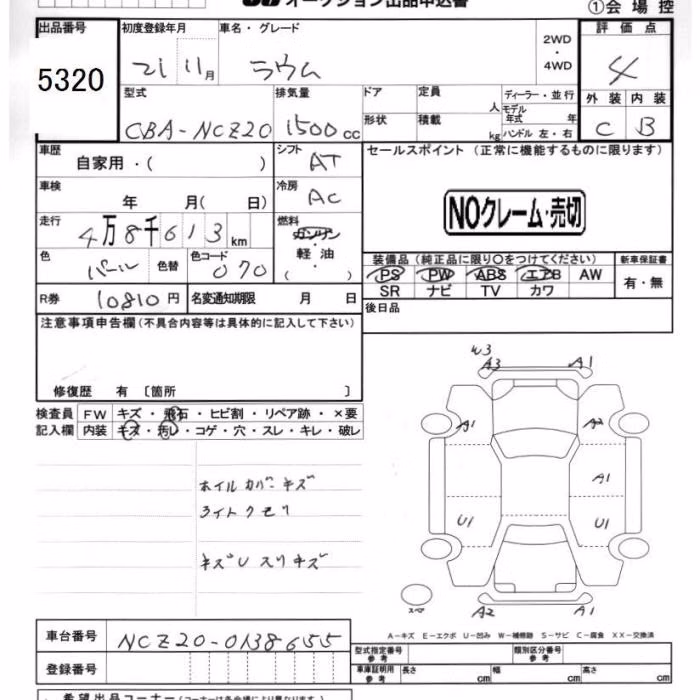 オークション出品申込書
①会場控
出品番号 初度登録年月 車名・グレード 2WD・4WD 評価点
5320 21 11月 ラウム 4
型式 排気量 ドア 定員 人 ディーラー・並行 外装 内装
形状 積載 kg モデル年式 年 ハンドル 左・右
CBA-NCZ20 1500cc C B
車歴 自家用・( ) シフト AT セールスポイント (正常に機能するものに限ります)
車検 年 月( 日) 冷房 AC
NOクレーム・売切
走行 4万8千613km 燃料 ガソリン・軽油・( )
色 パール 色替 色コード 070
装備品 (純正品に限り○をつけてください) 新車保証書
PS PW ABS エアB AW 有・無
SR ナビ TV カワ
R券 10810円 名変通知期限 月 日
後日品
注意事項申告欄(不具合内容等は具体的に記入して下さい)
修復歴 有〔箇所 〕
検査員記入欄 FW キズ・飛石・ヒビ割・リペア跡・×要
内装 キズ・汚レ・コゲ・穴・スレ・キレ・破レ
W3
A3 A1
A1 A2
A1
U1 U1
A2 A1
スペア
ホイルカバーキズ
ライトクモリ
キズUスリキズ
A-キズ E-エクボ U-凹み W-補修跡 S-サビ C-腐食 XX-交換済
車台番号 NCZ20-0138655
型式指定番号 参考 類別区分番号 参考
登録番号 車庫証明用 参考 長さ cm 幅 cm 高さ cm
希望出品コーナー(コーナーは各会場により異なります)